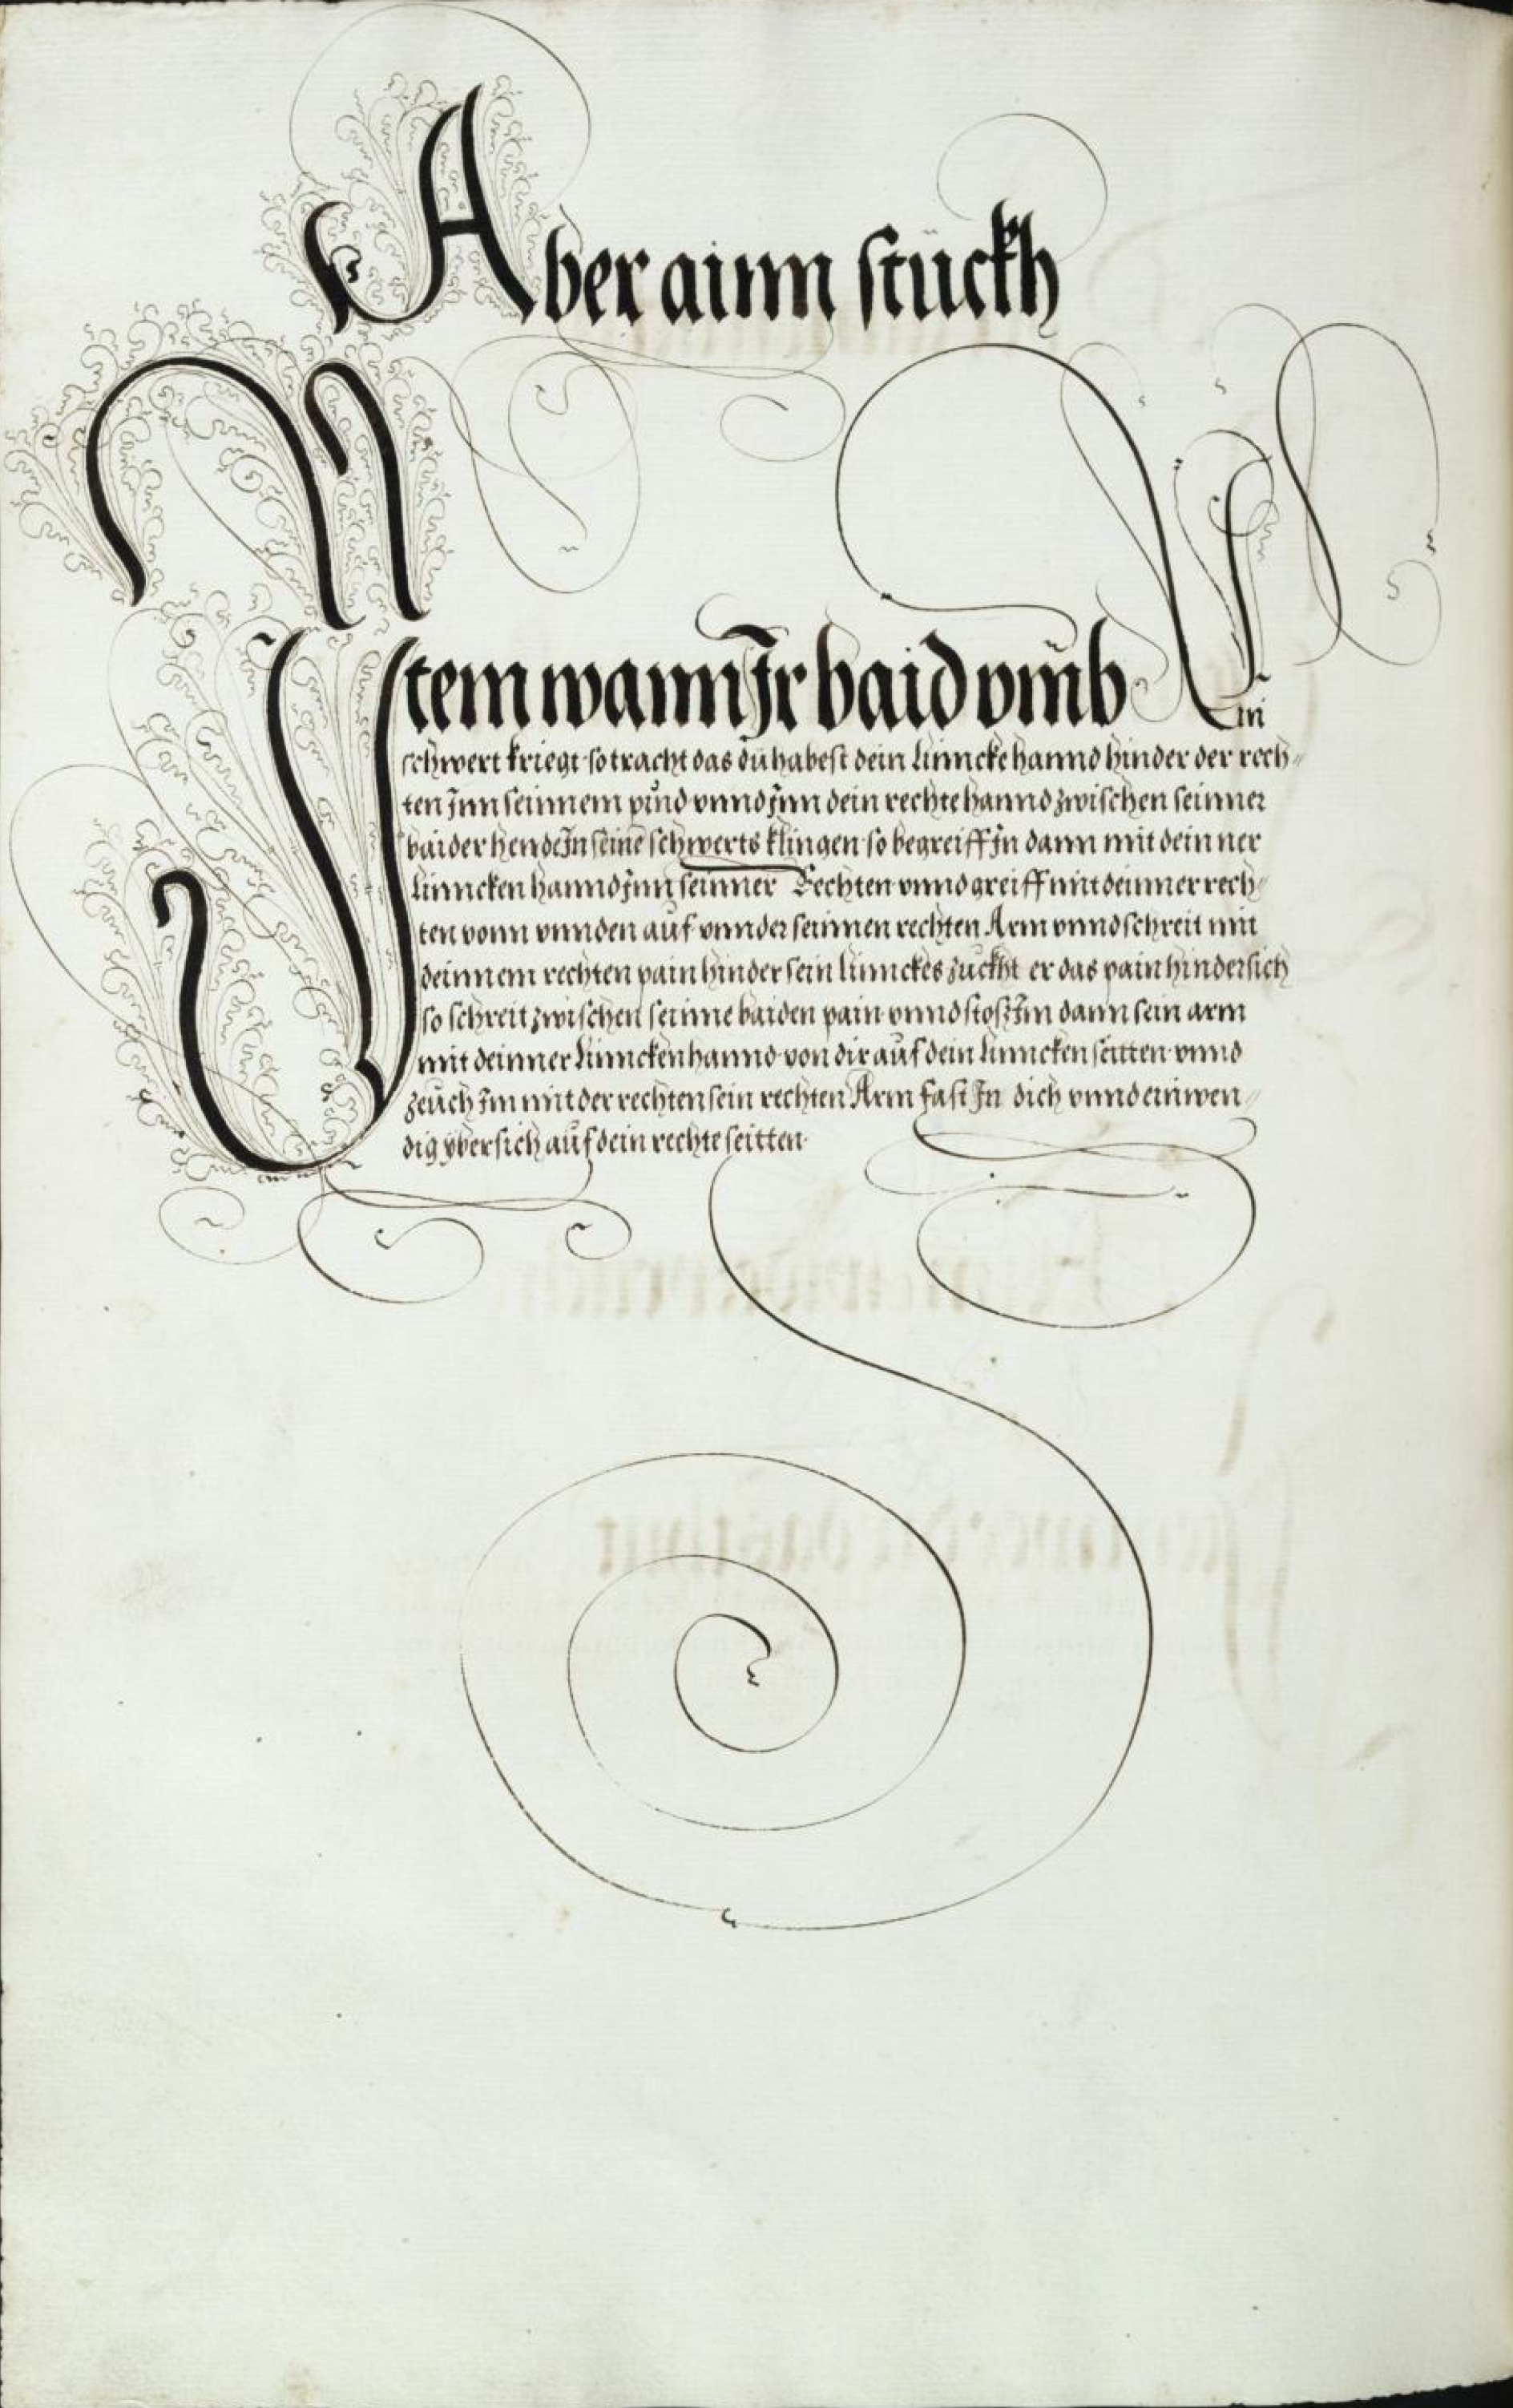 Aber ainn stückh
Item wann Jr baid vmb Ein
schwert kriegt so tracht das dü habest dein linncke hannd hinder der rech-
ten Jnn seinnem pünd vnnd Jnn dein rechte hannd zwischen seinner
baider hende Jn seinē schwerts klingen so begreiff Jn dann mit deinner
linncken hannd Jnn seinner Rechten vnnd greiff mit deinner rech-
ten vonn vnnden aüf vnnder seinnen rechten Arm vnnd schreit mit
deinnem rechten pain hinder sein linnckes zückht er das pain hindersich
so schreit zwischen seinne baiden pain vnnd stosz Jm dann sein arm
mit deinner linncken hannd von dir aüf dein linncken seitten vnnd
zeüch Jm mit der rechten sein rechten Arm fast Jn dich vnnd einwen-
dig ÿbersich aüf dein rechte seitten